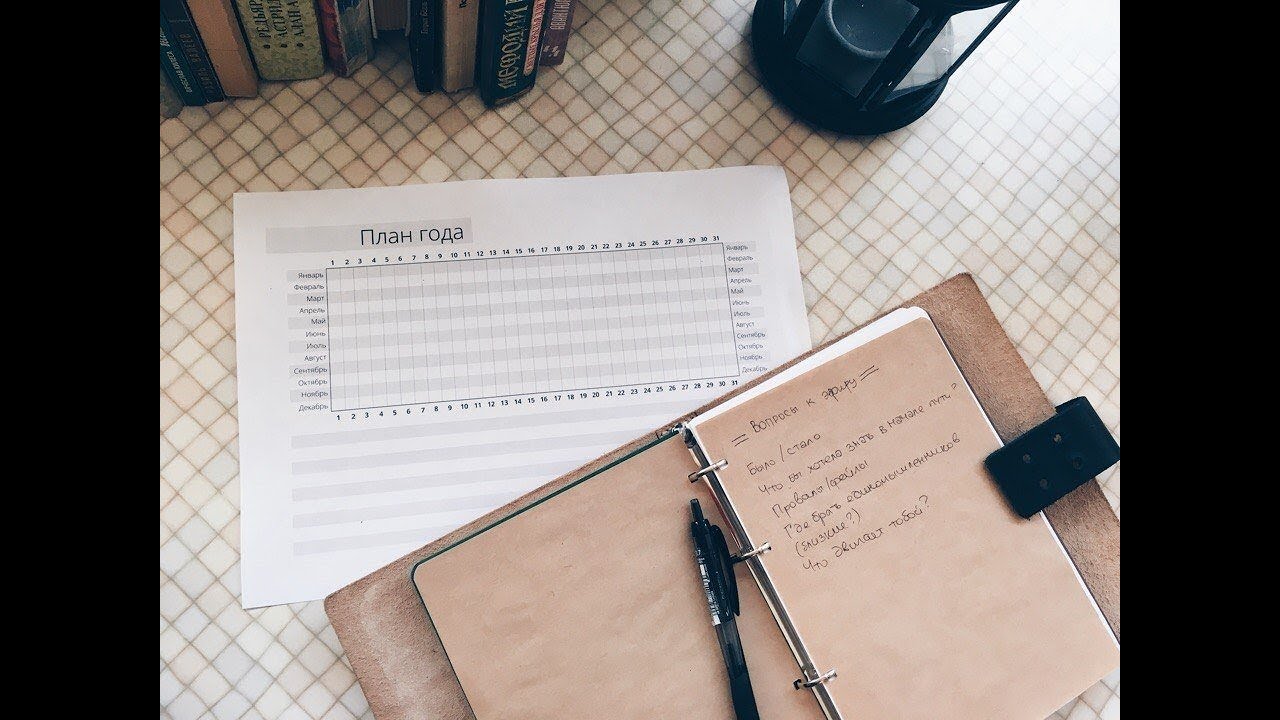 РЕДЬЯРД
АСТРИД
АЛАН А
МЕФОДИЙ
План года
1 2 3 4 5 6 7 8 9 10 11 12 13 14 15 16 17 18 19 20 21 22 23 24 25 26 27 28 29 30 31
Январь Январь
Февраль Февраль
Март Март
Апрель Апрель
Май Май
Июнь Июнь
Июль Июль
Август Август
Сентябрь Сентябрь
Октябрь Октябрь
Ноябрь Ноябрь
Декабрь Декабрь
1 2 3 4 5 6 7 8 9 10 11 12 13 14 15 16 17 18 19 20 21 22 23 24 25 26 27 28 29 30 31
= Вопросы к эфиру =
Было / стало
Что бы хотела знать в начале пути?
Провалы/фейлы
Где брать единомышленников
(близкие?)
Что движет тобой?